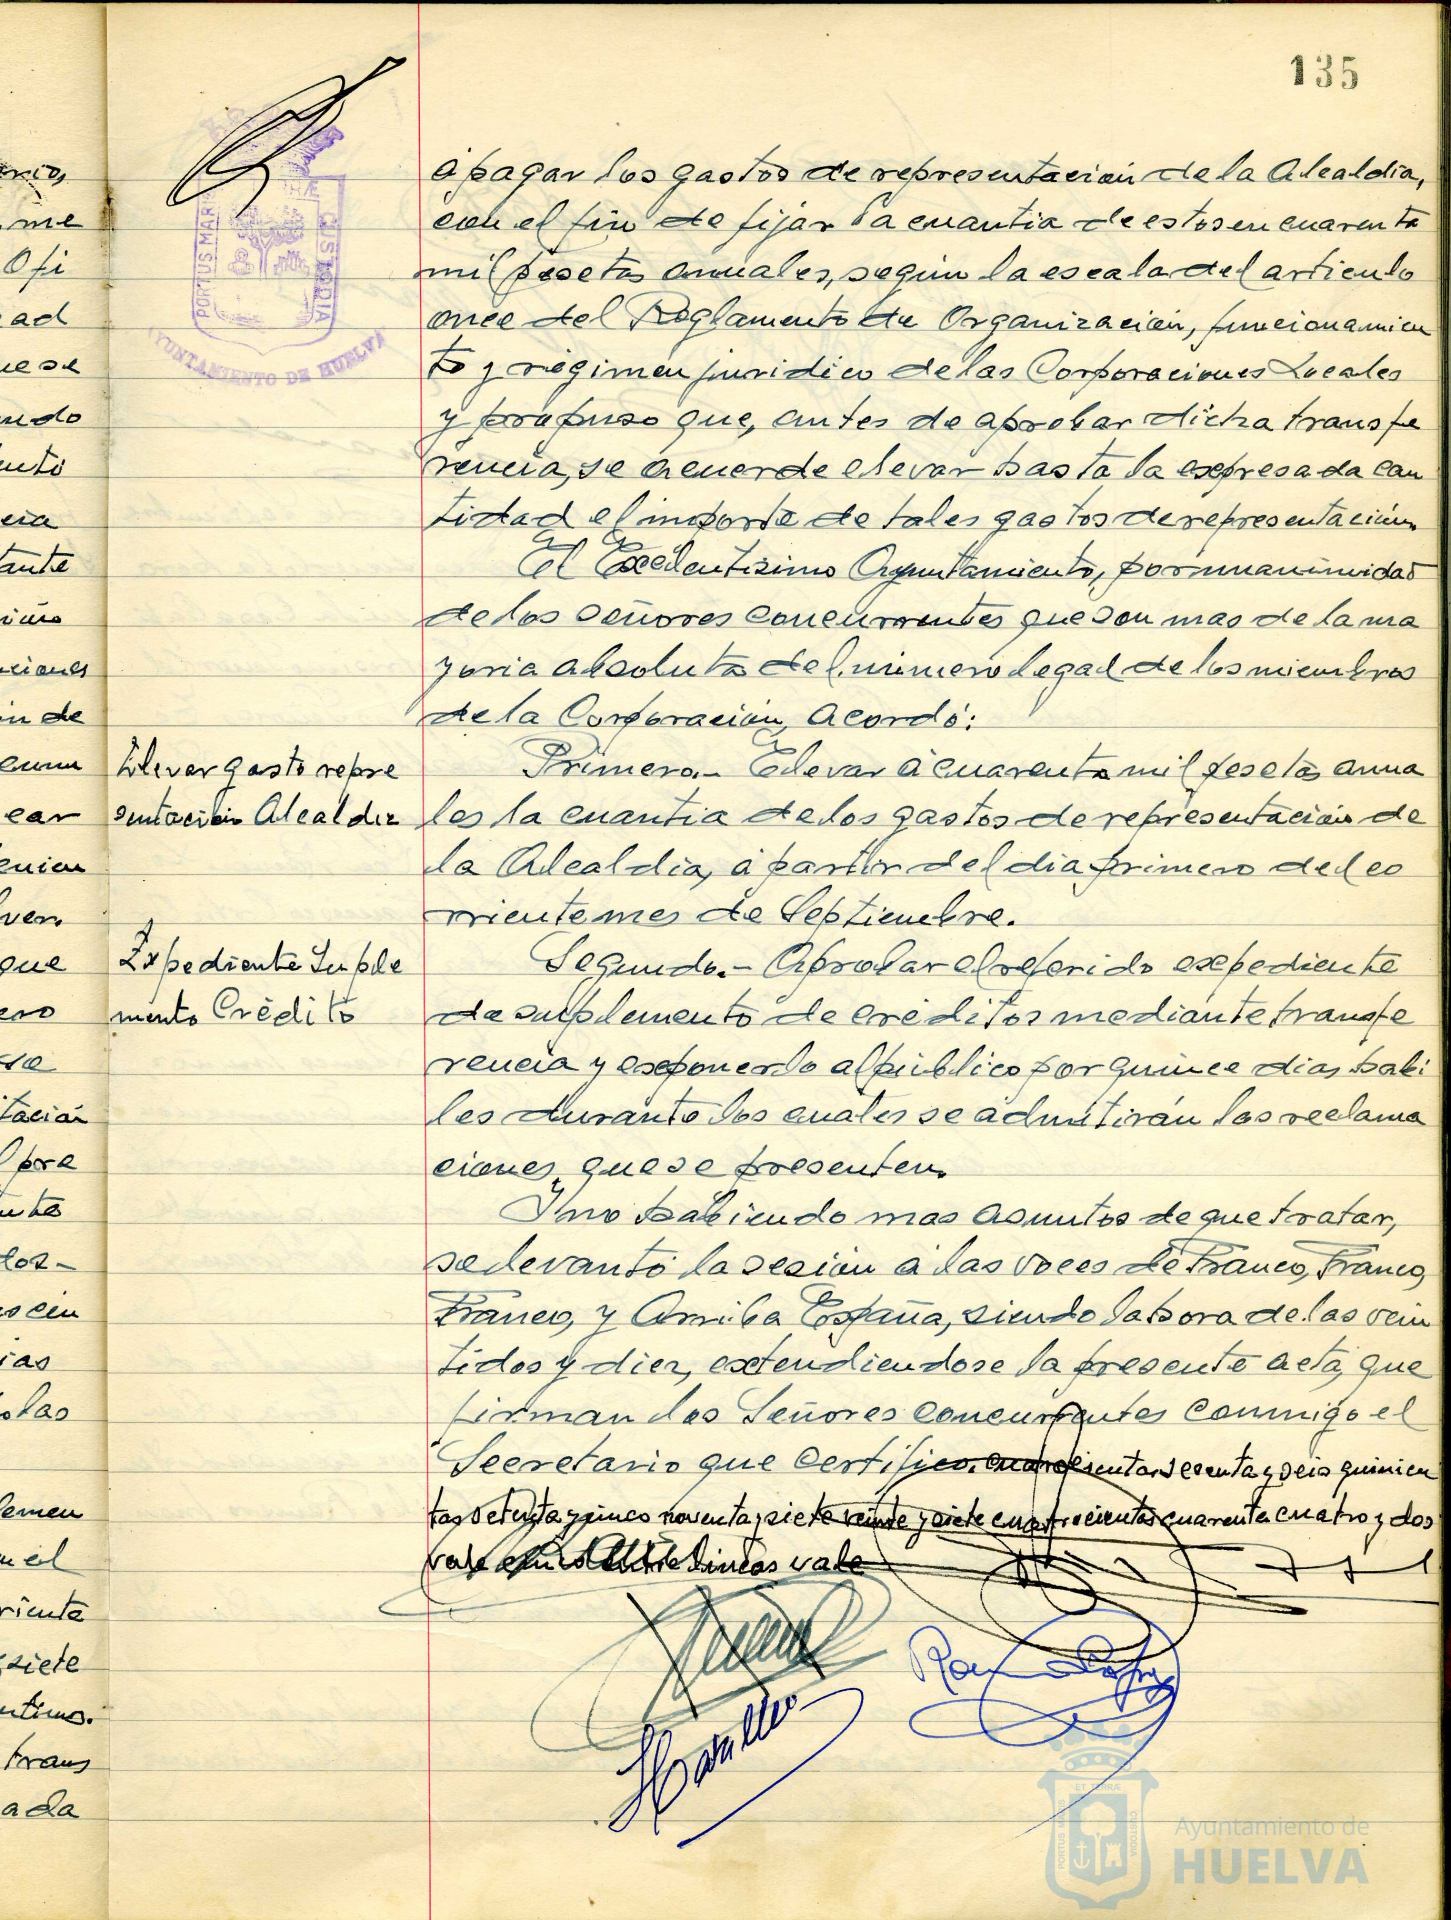 135
á pagar los gastos de representación de la Alcaldia,
con el fin de fijar la cuantia de estos en cuarenta
mil pesetas anuales, según la escala del articulo
once del Reglamento de Organización, funcionamien
to y régimen juridico de las Corporaciones Locales
y propuso que, antes de aprobar dicha transfe
rencia, se acuerde elevar hasta la expresada can
tidad el importe de tales gastos de representación.
El Excelentisimo Ayuntamiento, por unanimidad
de los señores concurrentes que son mas de la ma
yoria absoluta del número legal de los miembros
de la Corporación, acordó:
Elevar gasto repre
sentación Alcaldia
Primero.- Elevar á cuarenta mil pesetas anua
les la cuantia de los gastos de representación de
la Alcaldia, á partir del dia primero del co
rriente mes de Septiembre.
Expediente Suple
mento Crédito
Segundo.- Aprobar el referido expediente
de suplemento de créditos mediante transfe
rencia y exponerlo al público por quince dias habi
les durante los cuales se admitirán las reclama
ciones que se presenten.
Y no habiendo mas asuntos de que tratar,
se levantó la sesión á las voces de Franco, Franco,
Franco, y Arriba España, siendo la hora de las vein
tidos y diez, extendiendose la presente acta, que
firman los Señores concurrentes conmigo el
Secretario que certifico. sesenta y seis quinien
tas setenta y cinco noventa y siete veinte y siete cuatrocientas cuarenta cuatro y dos
vale entre lineas vale
PORTUS MARIS
CUSTODIA
AYUNTAMIENTO DE HUELVA
rio,
me
Ofi
ad
ue se
ndo
ento
cia
tante
ciones
ón de
ear
que
se
tación
l pre
dos-
las
lemen
n el
riente
siete
ntimos.
trans
ada
ET TERRÆ
PORTUS MARIS
CUSTODIA
Ayuntamiento de
HUELVA